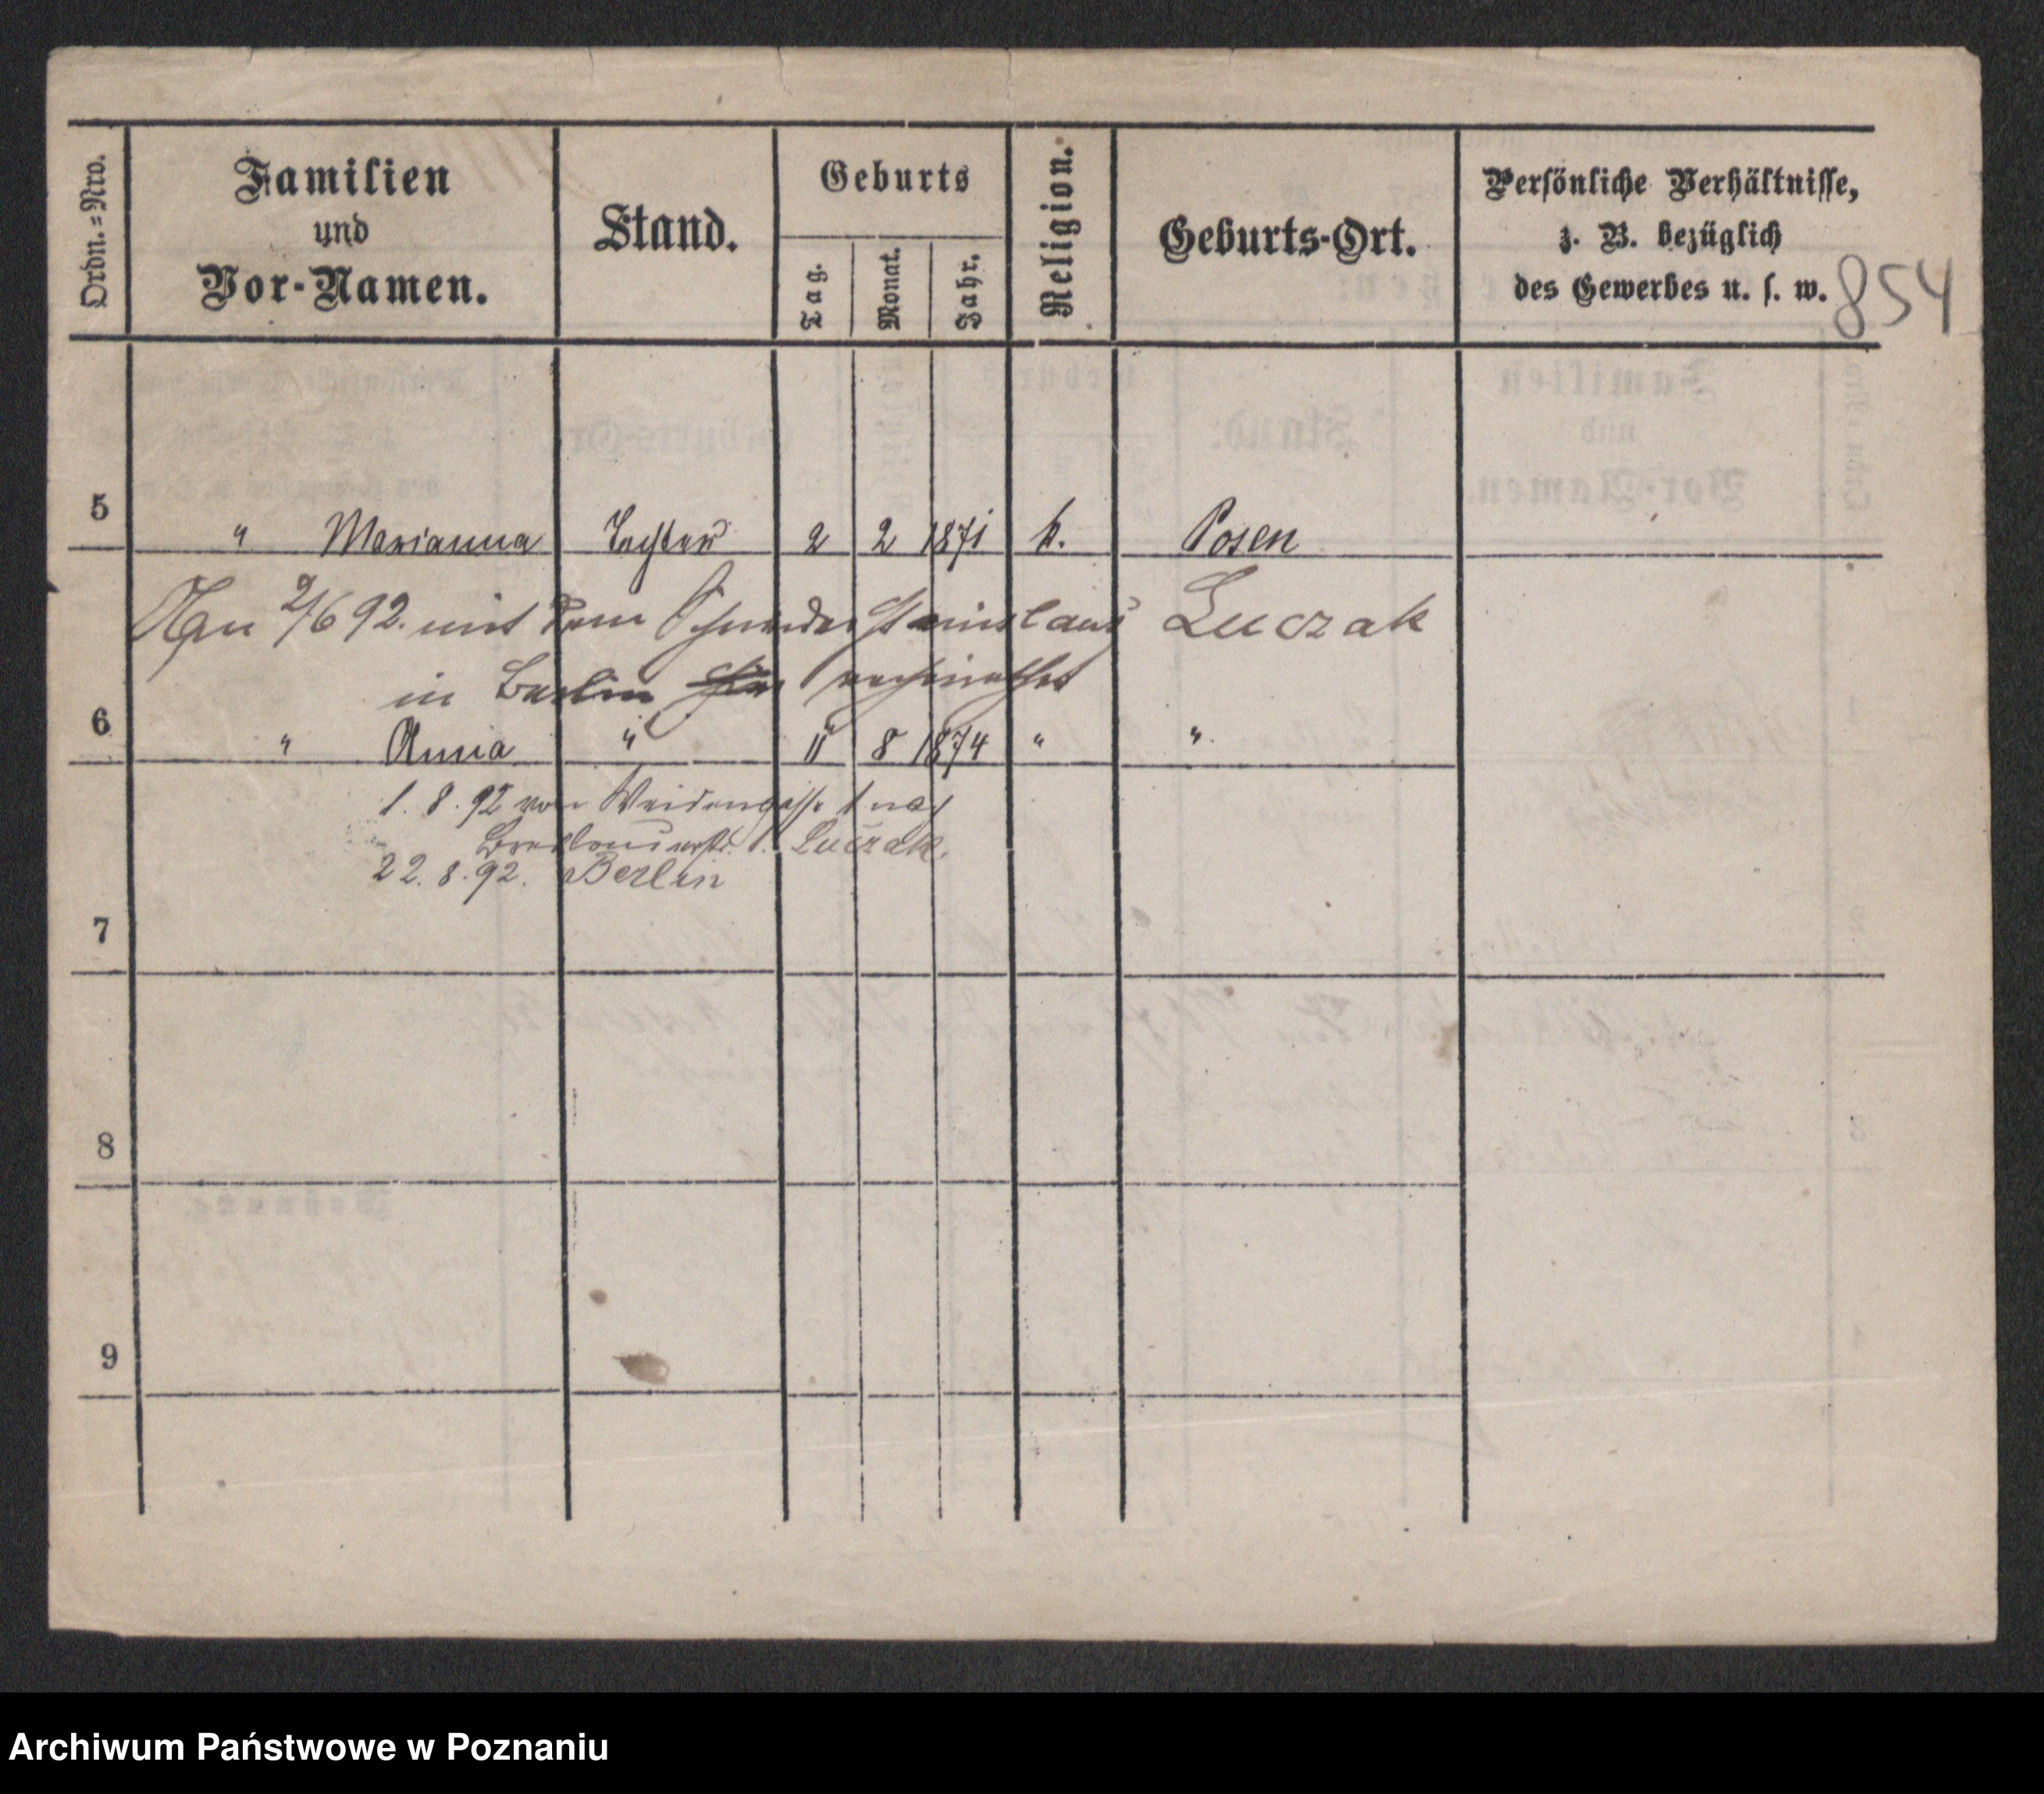 Ordn.=Nro.
Familien
und
Vor-Namen.
Stand.
Geburts
Tag.
Monat.
Jahr.
Religion.
Geburts-Ort.
Persönliche Verhältnisse,
z. B. bezüglich
des Gewerbes u. s. w.
854
5 " Marianna Tochter 2 2 1871 k. Posen
2/6 92. mit dem Schneider Stanislaus Luczak
in Berlin verheirathet
6 " Anna " 11 8 1874 " "
1. 8. 92 von Weidengasse 1 nach
Breslauerstr. Luczak.
22. 8. 92. Berlin
7
8
9
Archiwum Państwowe w Poznaniu